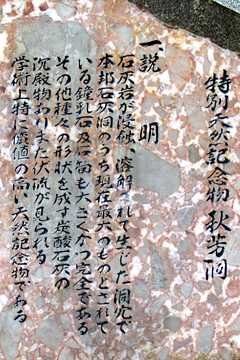 特別天然記念物 秋芳洞
一、説明
石灰岩が浸蝕、溶解されて生じた洞穴で
本邦石灰洞のうち現在最大のものとされて
いる鐘乳石及石筍も大きくかつ完全である
その他種々の形状を成す炭酸石灰の
沉殿物ありまた伏流が見られる
学術上特に價値の高い天然記念物である